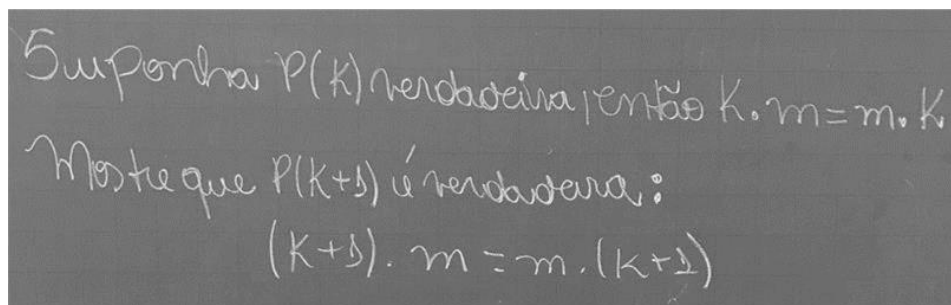 Suponha P(K) verdadeira, então K.m=m.K
Mostre que P(K+1) é verdadeira:
(K+1). m = m.(K+1)